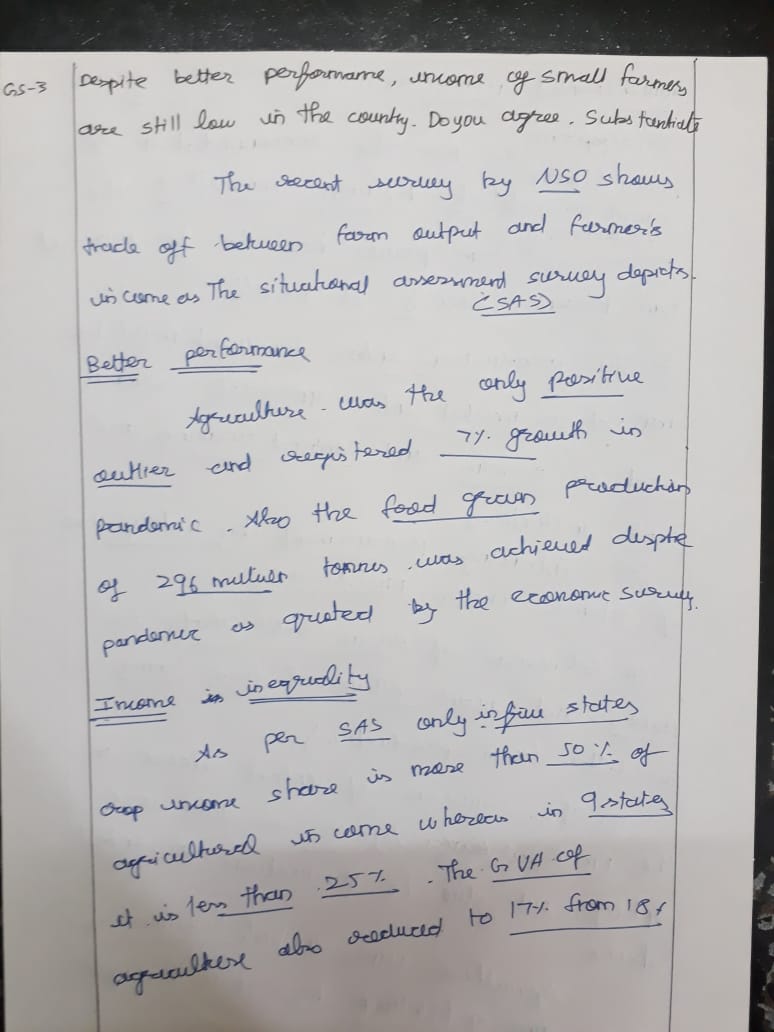 GS-3 Despite better performance, income of small farmers
are still low in the country. Do you agree. Substantiate
The recent survey by NSO shows
trade off between farm output and farmer's
income as The situational assessment survey depicts.
(SAS)
Better performance
Agriculture was the only positive
outlier and registered 7% growth in
pandemic. Also the food grain production
of 296 million tonnes was achieved despite
pandemic as quoted by the economic survey.
Income inequality
As per SAS only in five states
crop income share is more than 50% of
agricultural income whereas in 9 states
it is less than 25%. The GVA of
agriculture also reduced to 17% from 18%